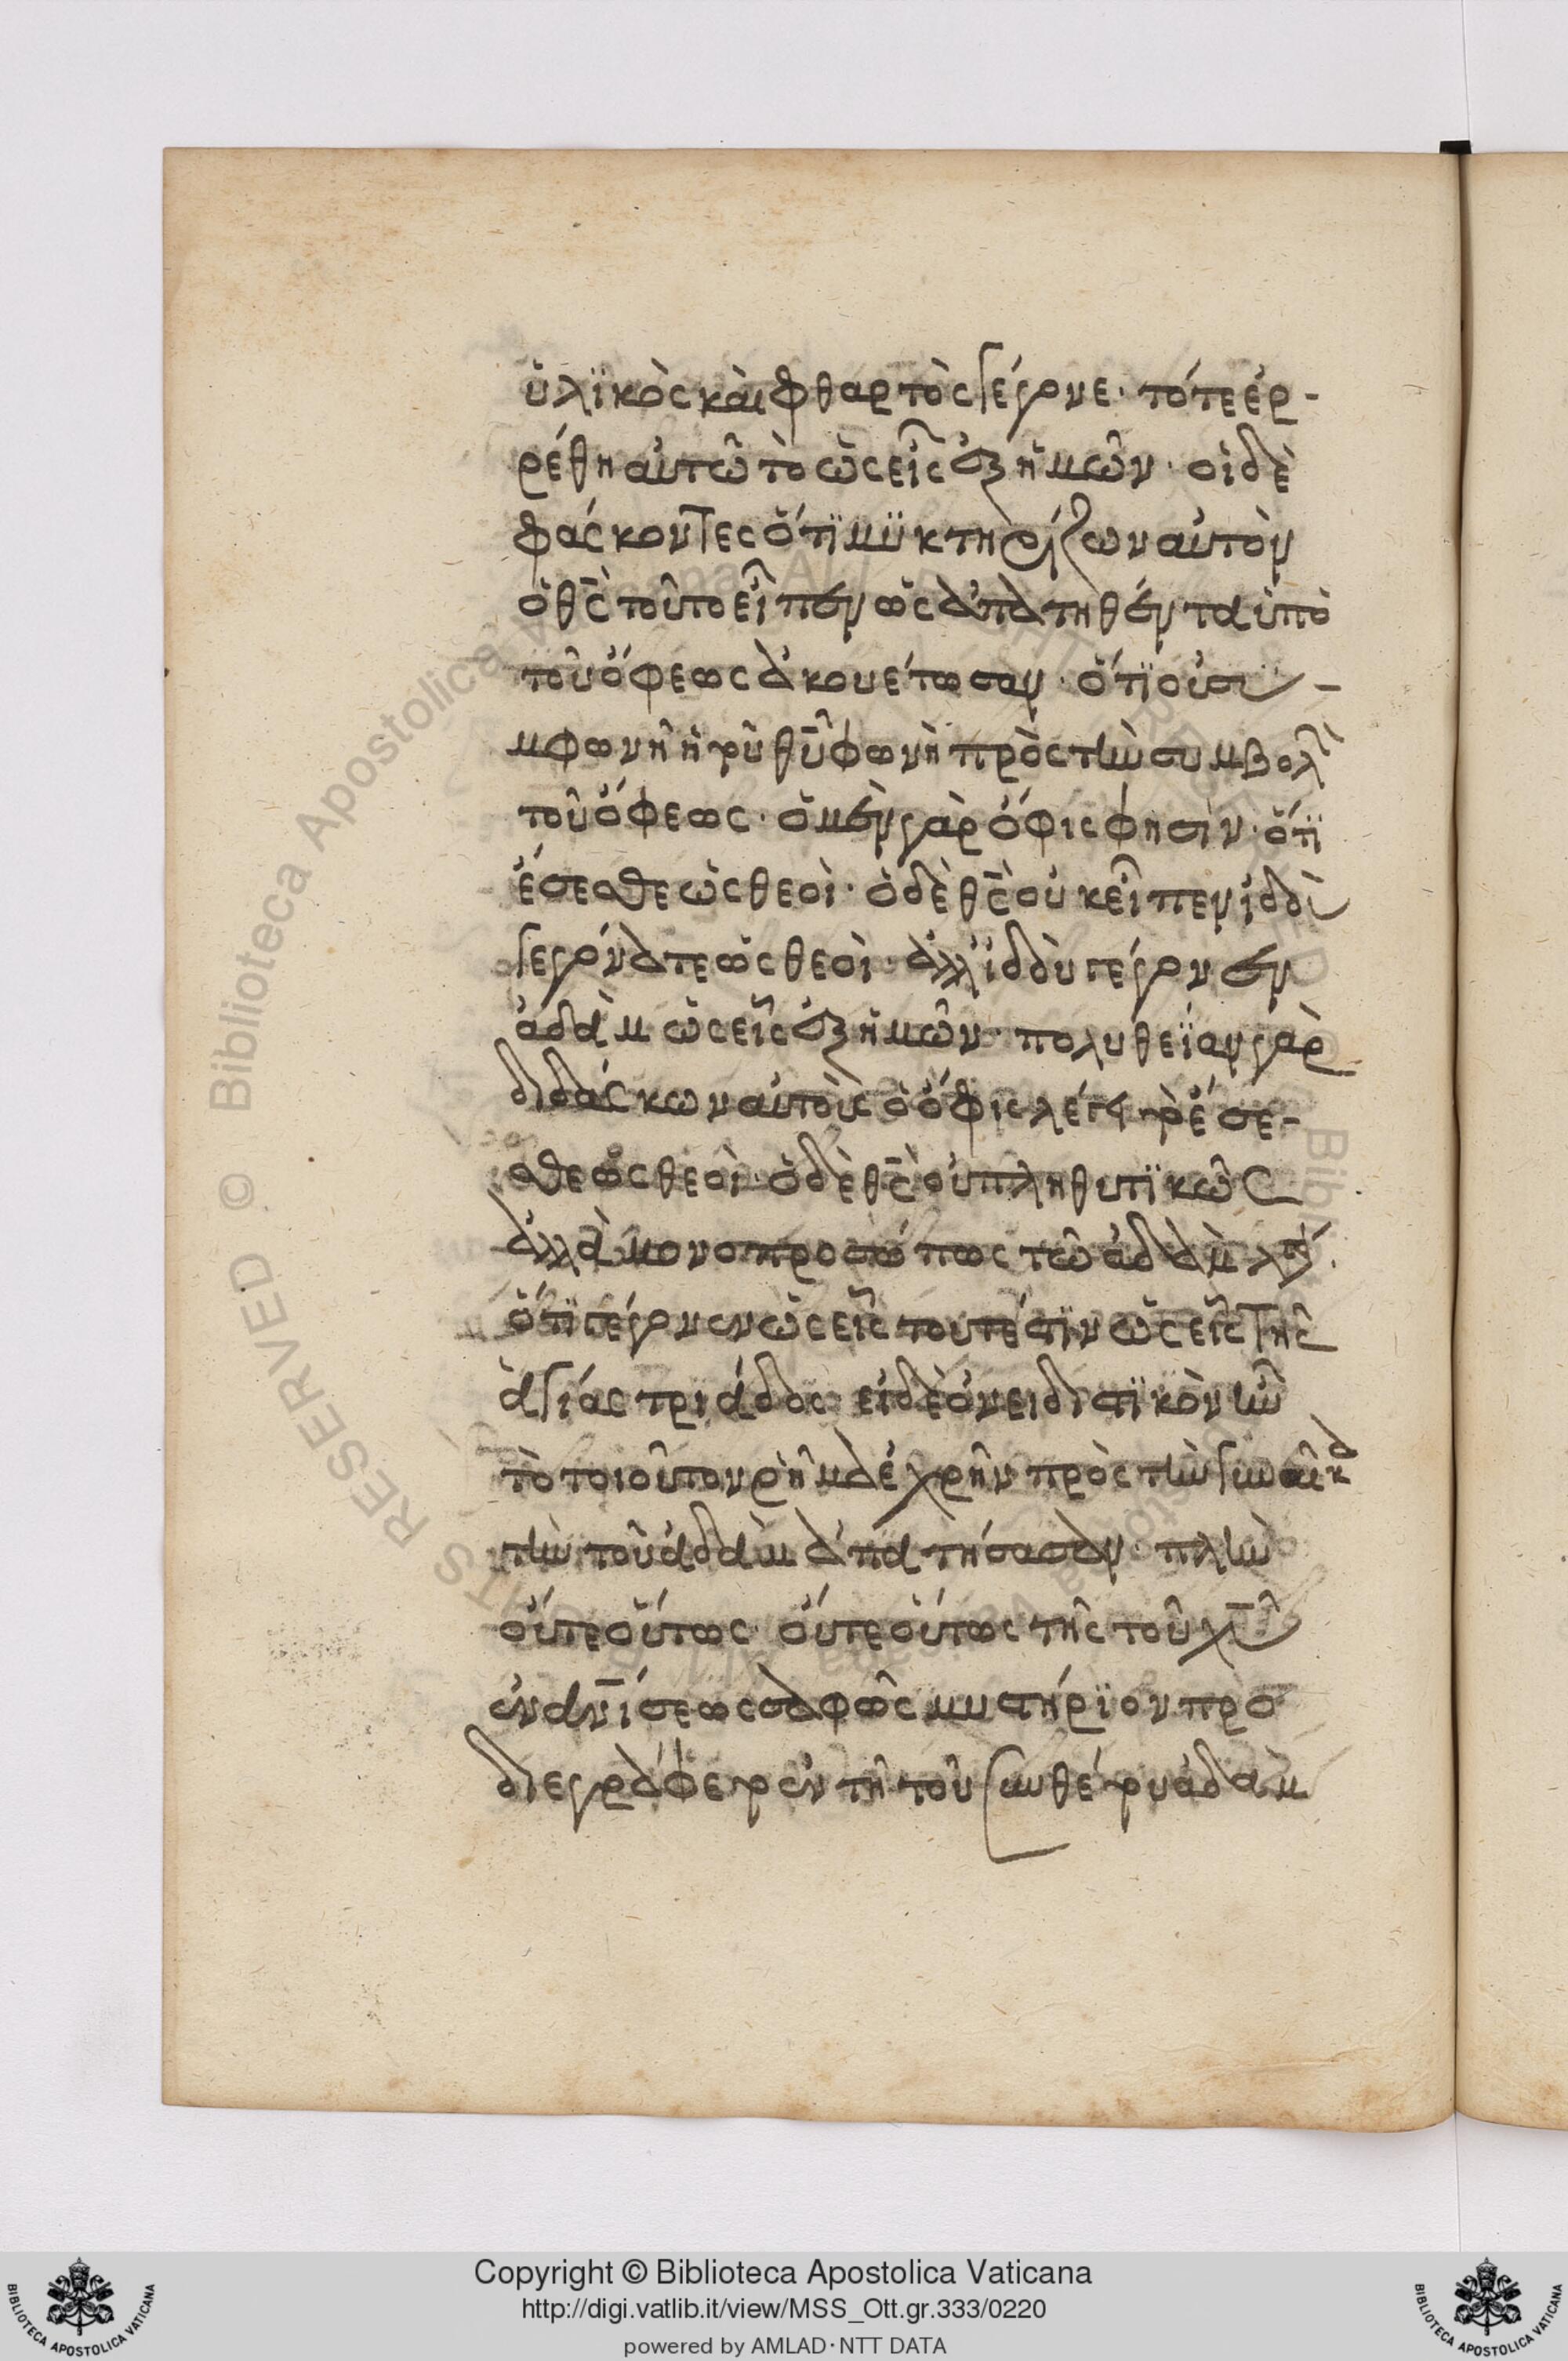 ὑλϊκὸς καὶ φθαρτὸς γέγονε· τότε ἐρ-
ρέθη αὐτῶ τὸ ὡς εἷς ἐξ ἡμῶν· οἱ δὲ
φάσκοντες ὅτϊ μϋκτηρίζων αὐτὸν
ὁ θ̅ς̅ τοῦτο εἶπεν ὡς ἀπατηθέντα ὑπὸ
τοῦ ὄφεως ἀκουέτωσαν· ὅτϊ οὐ συ-
μφωνῆ ἡ τοῦ θ̅υ̅ φωνὴ πρὸς τὴν συμβολὴ
τοῦ ὄφεως· ὁ μὲν γὰρ ὄφις φησὶν· ὅτϊ
ἔσεσθε ὡς θεοὶ· ὁ δὲ θ̅ς̅ οὐκ εἶπεν ἰδοὺ
γεγόνατε ὡς θεοὶ· ἀλλ' ἰδοὺ γέγονεν
ἀδὰμ ὡς εἷς ἐξ ἡμῶν· πολυθεΐαν γὰρ
διδάσκων αὐτοὺς ὁ ὄφις λέγει τὸ ἔσε-
σθε ὡς θεοὶ· ὁ δὲ θ̅ς̅ οὐ πληθυτϊκῶς
ἀλλὰ μονοπροσώπως τῶ ἀδὰμ λέγει·
ὅτϊ γέγονεν ὡς εἷς τουτέστϊν ὡς εἷς τῆς
ἁγίας τριάδος· εἰ δὲ ὀνειδιστϊκὸν ἦν
τὸ τοιοῦτον ῥῆμα ἐχρῆν πρὸς τὴν γυναῖκα
τὴν τοῦ ἀδὰμ ἀπατήσασαν· πλὴν
οὔτε οὕτως· οὔτε οὕτως τῆς τοῦ χ̅υ̅
σαφῶς μυστήριον προ
διεγράφετο ἐν τῆ τοῦ ἀδὰμ
Copyright © Biblioteca Apostolica Vaticana
http://digi.vatlib.it/view/MSS_Ott.gr.333/0220
powered by AMLAD·NTT DATA